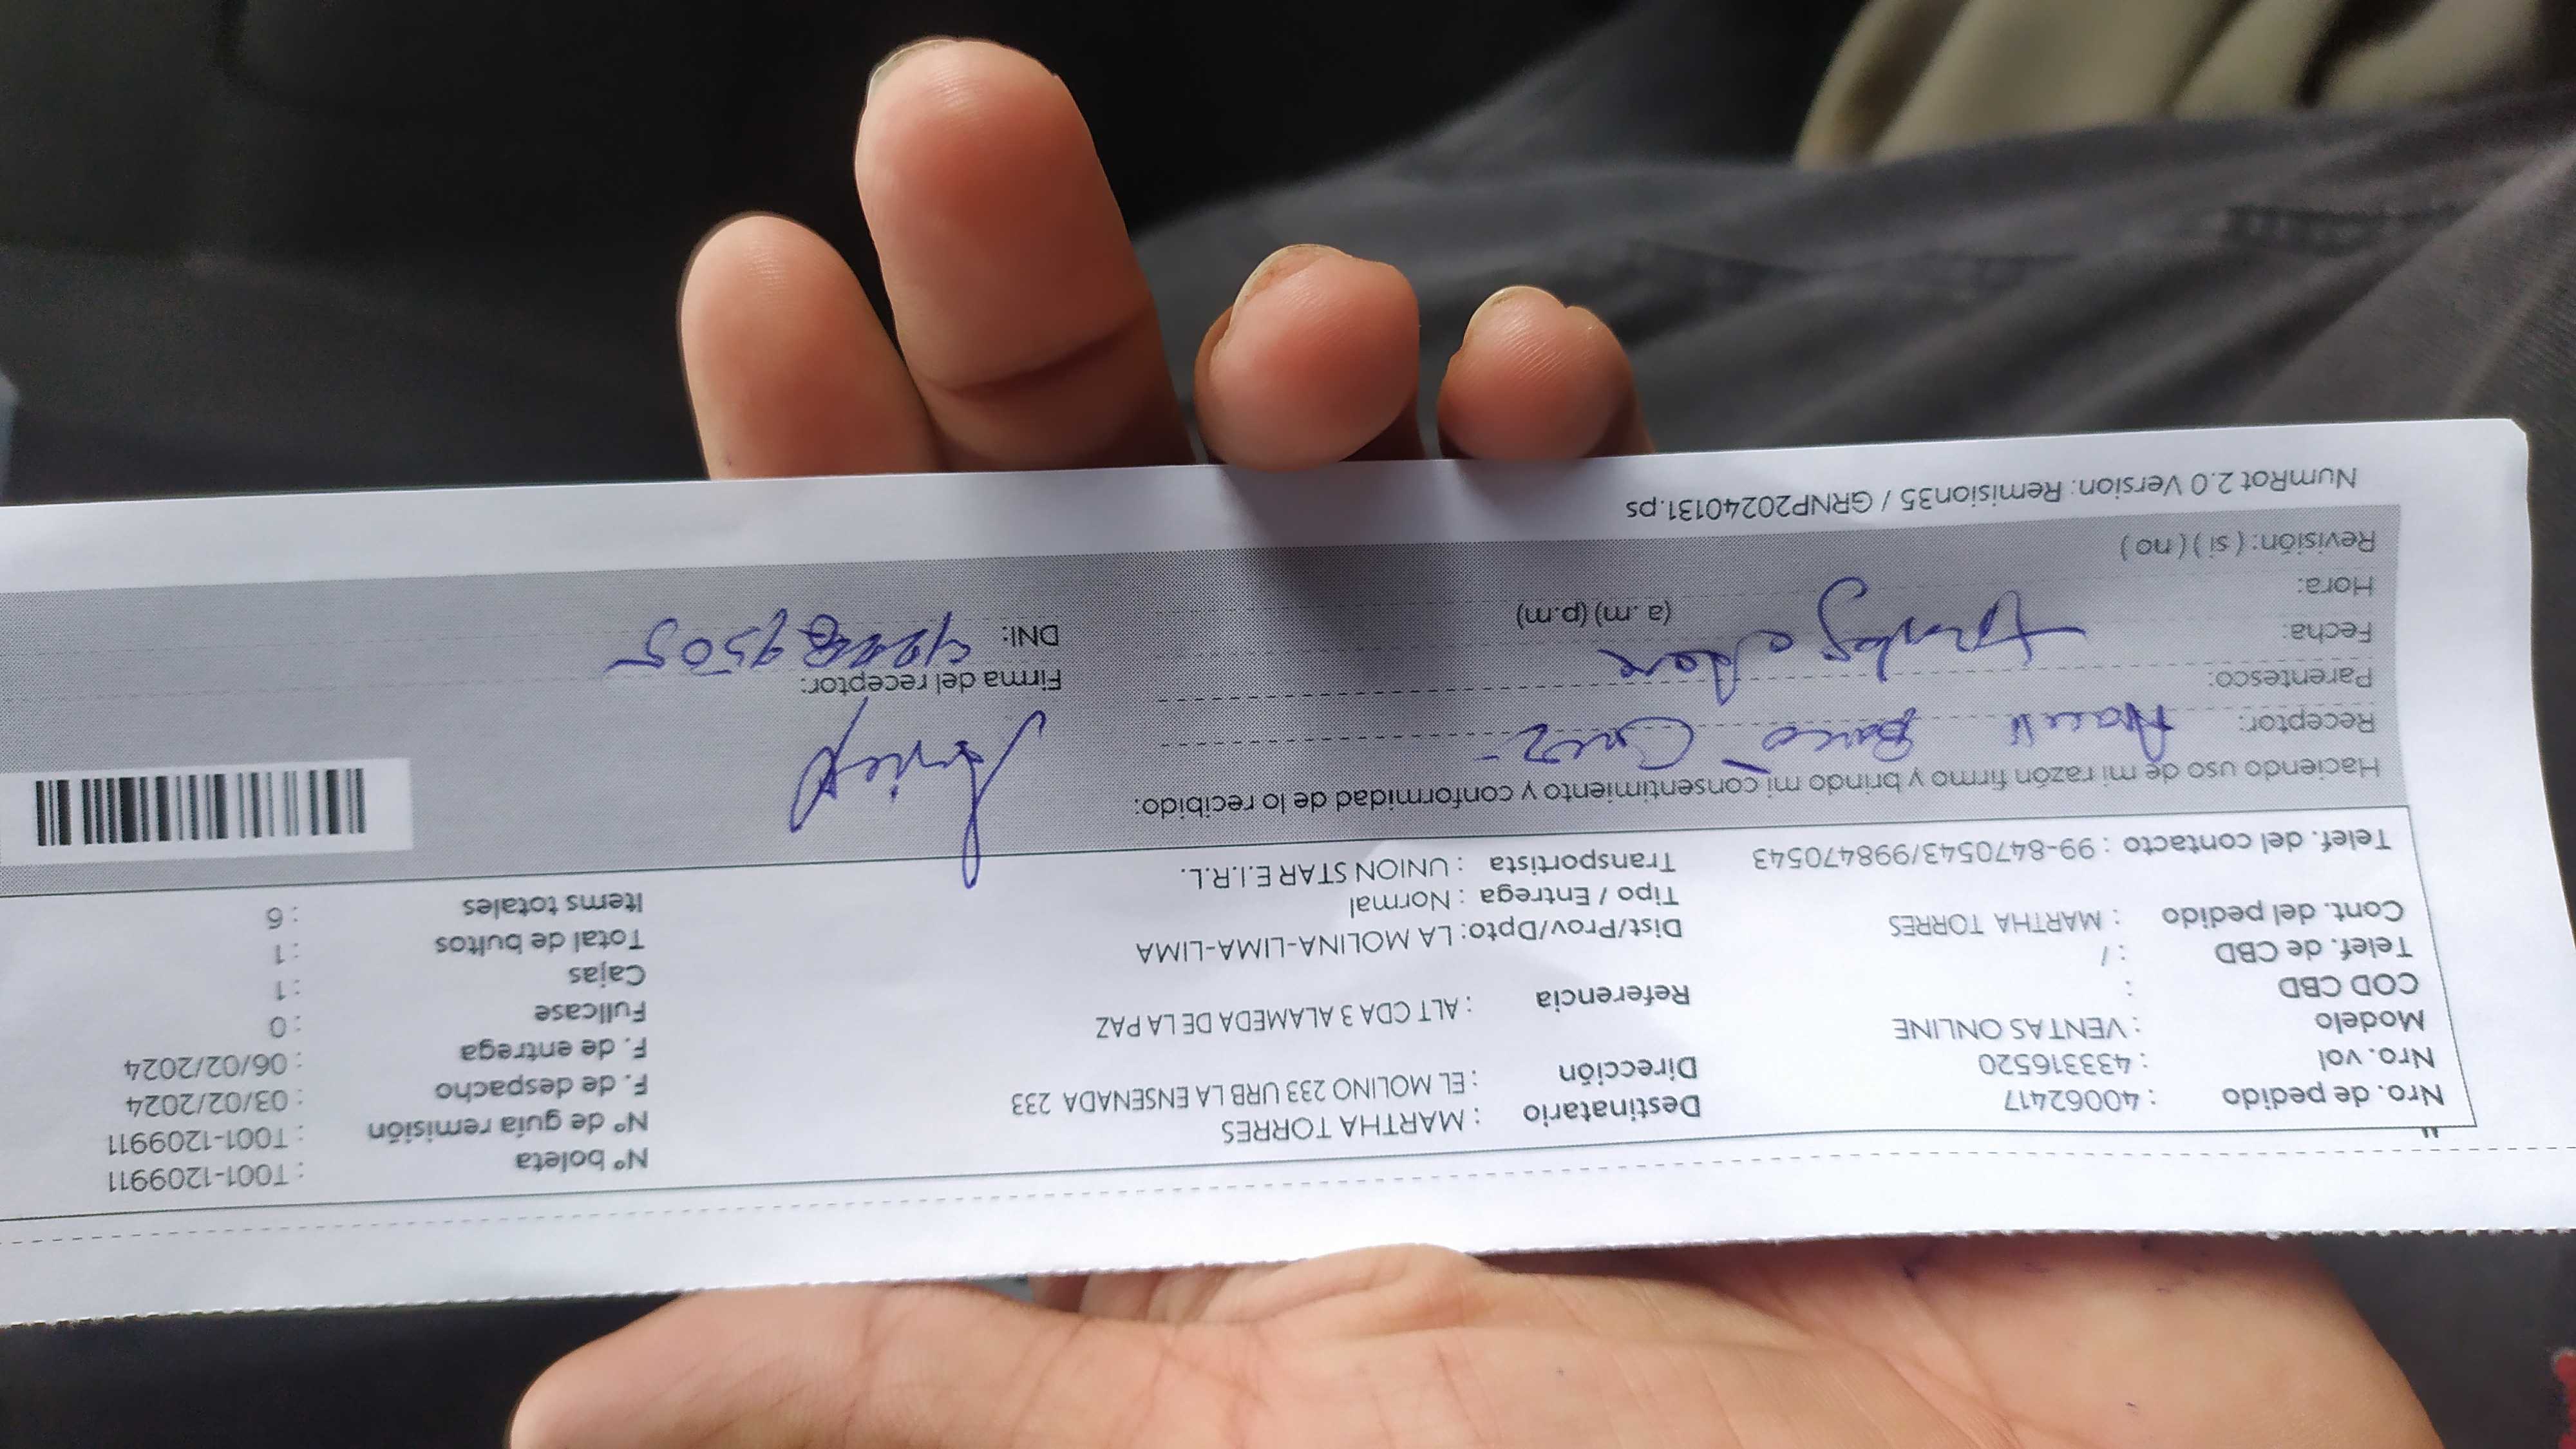 Nro. de pedido : 40062417
Nro. vol : 433316520
Modelo : VENTAS ONLINE
COD CBD :
Telef. de CBD : /
Cont. del pedido : MARTHA TORRES
Telef. del contacto : 99-8470543/998470543
Destinatario : MARTHA TORRES
Dirección : EL MOLINO 233 URB LA ENSENADA 233
Referencia : ALT CDA 3 ALAMEDA DE LA PAZ
Dist/Prov/Dpto: LA MOLINA-LIMA-LIMA
Tipo / Entrega : Normal
Transportista : UNION STAR E.I.R.L.
Nº boleta : T001-1209911
Nº de guía remisión : T001-1209911
F. de despacho : 03/02/2024
F. de entrega : 06/02/2024
Fullcase : 0
Cajas : 1
Total de bultos : 1
Items totales : 6
Haciendo uso de mi razón firmo y brindo mi consentimiento y conformidad de lo recibido:
Receptor: Cruz
Parentesco:
Fecha:
Hora: (a.m) (p.m)
Revisión: ( si ) ( no )
Firma del receptor:
DNI:
NumRot 2.0 Version: Remision35 / GRNP20240131.ps